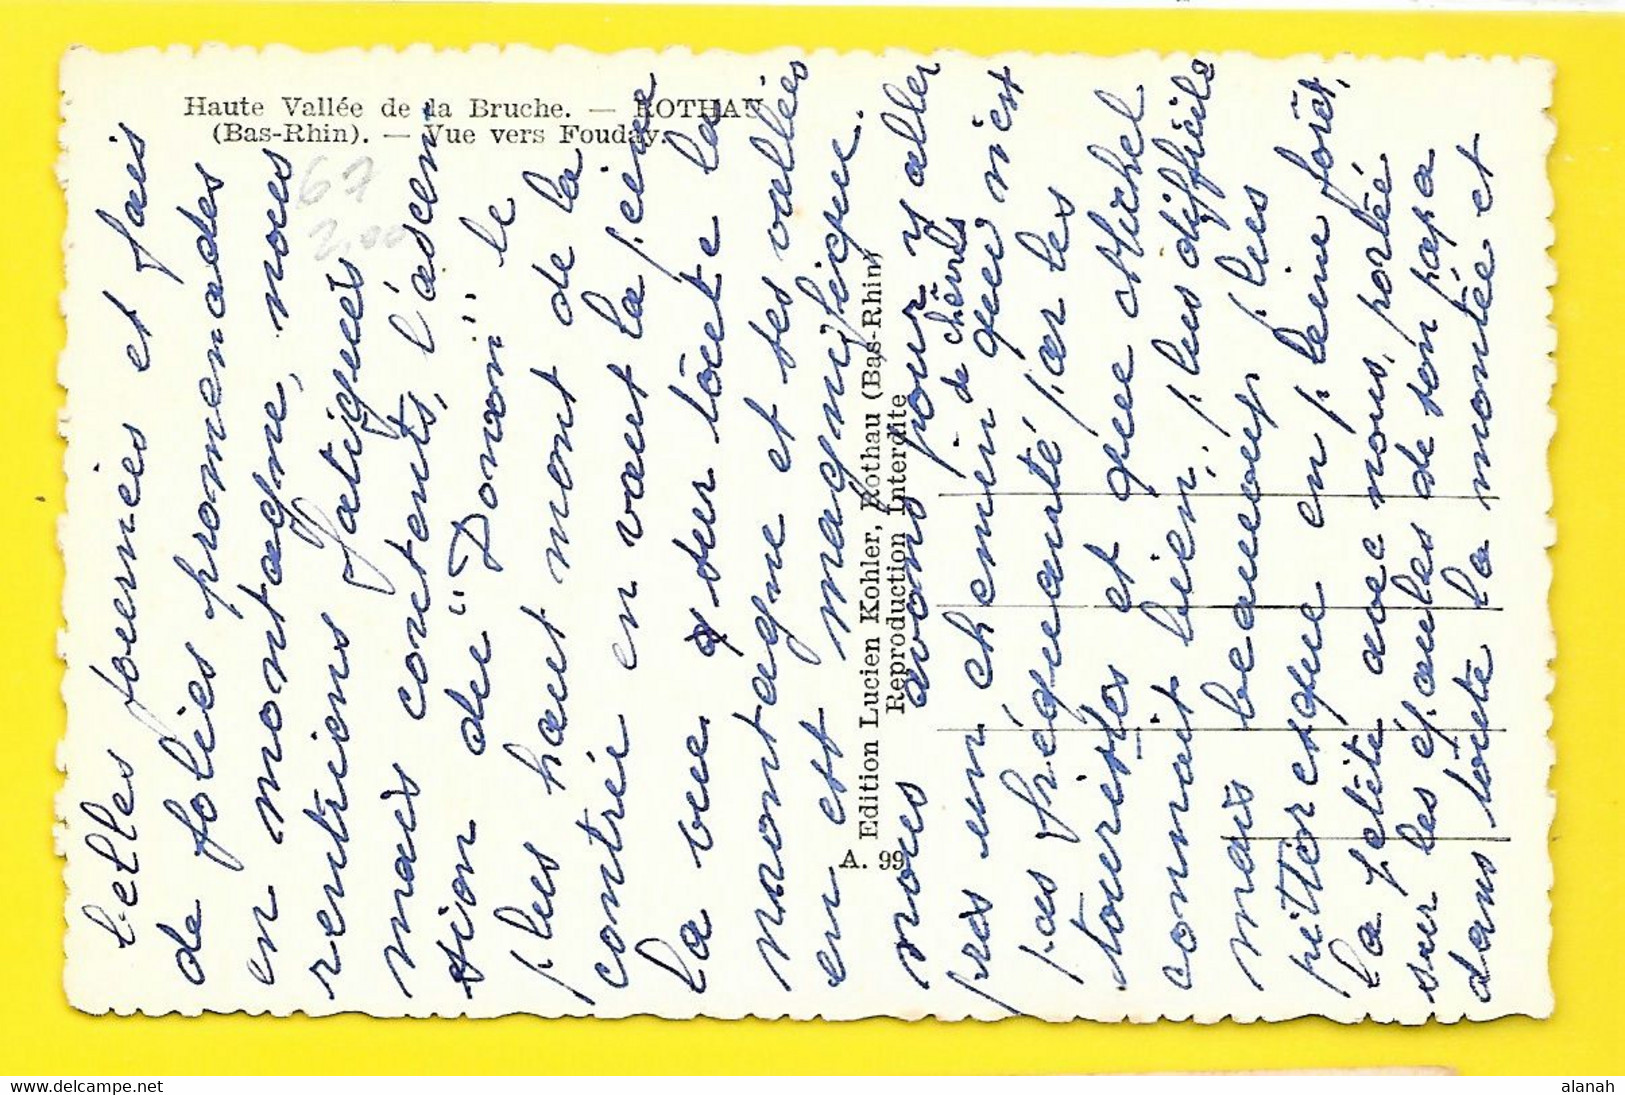 Haute Vallée de la Bruche. — ROTHAU
(Bas-Rhin). — Vue vers Fouday.
67
2,00
Edition Lucien Kohler, Rothau (Bas-Rhin)
Reproduction Interdite
A. 99
belles journées et fais
de jolies promenades
en montagne, nous
rentriens fatigués
mais contents, l'ascen
sion du "Donon" le
plus haut mont de la
contrée en vaut la peine
la vue sur toute la
montagne et ses vallées
en est magnifique.
nous avons pour y aller
pris un chemin de chèvres que n'est
pas fréquenté par les
touristes et que Michel
connait bien, plus difficile
mais beaucoup plus
pittoresque en pleine forêt,
la petite avec nous, portée
sur les épaules de son papa
dans toute la montée et
alanah
www.delcampe.net